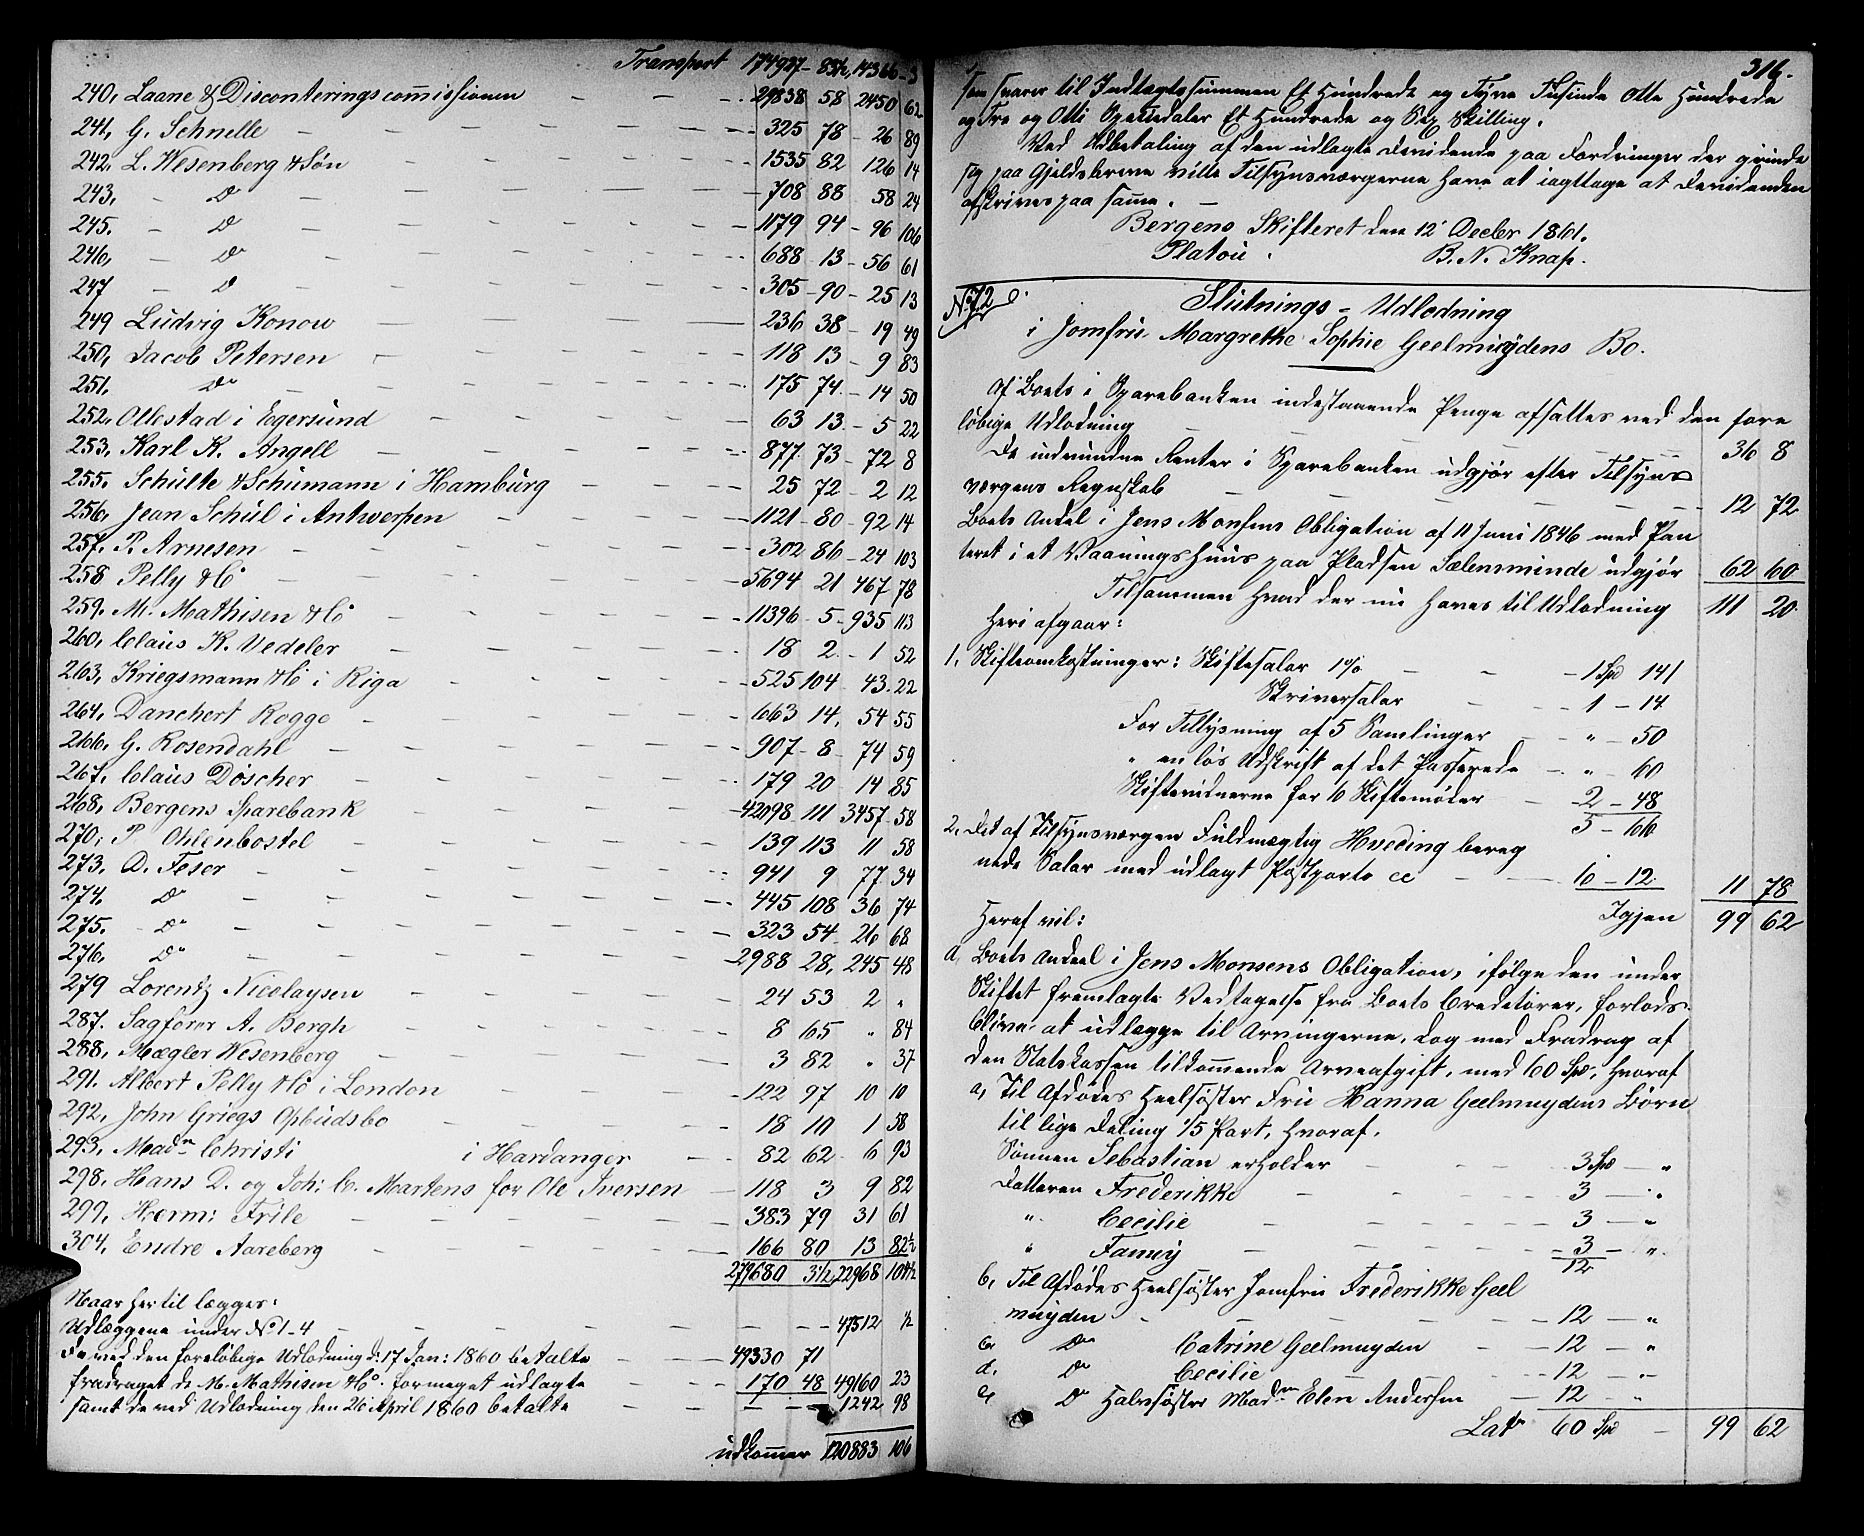 Transport 174927 - 83½, 14366 - 3
240, Laane & Disconteringscommissionen - - - 29838 58 2450 62
241, G. Schnelle - - - 325 78 - 26 89
242, L. Wesenberg & Søn - - - 1535 82 126 14
243, - Do - - - 708 88 58 24
245. - Do - - - 1179 94 - 96 106
246, - Do - - - 688 - 13 - 56 61
247 - Do - - - 305 - 90 - 25 13
249 Ludvig Konow - - - 236 38 - 19 49
250, Jacob Petersen - - - 118 13 - 9 83
251. Do - - - 175 74 - 14 50
252, Ollestad i Egersund - - - 63 13 - 5 22
253, Karl K. Angell - - - 877 73 - 72 8
255. Schulte & Schumann i Hamburg - - - 25 72 - 2 12
256, Jean Schul i Antwerpen - - - 1121 - 80 - 92 14
257. P. Arnesen - - - 302 86 - 24 103
258 Pelly & Co - - - 5694 21 467 78
259. M. Mathisen & Co - - - 11396 - 5 - 935 113
260, Claus K. Vedeler - - - 18 2 - 1 52
263, Kriegsmann & Co i Riga - - - 525 104 43. 22
264, Danchert Rogge - - - 663 14, 54 55
266, G. Rosendahl - - - 907 - 8 - 74 59
267, Claus Döscher - - - 179 20 14 85
268, Bergens Sparebank - - - 42098 111 3457 58
270, P Ohlenbostel - - - 139 113 11 58
273, D. Feser - - - 941 9 77 34
274. Do - - - 445 108 36 74
275. - Do - - - 323 54 - 26 68
276, Do - - - 2988 28, 245 48
279 Lorentz Nicolaysen - - - 24 53 2 "
287. Sagfører A. Bergh - - - 8 65 " 84
288, Mægler Wesenberg - - - 3 82 " 37
291. Albert Pelly & Co i London - - - 122 97 10 10
292, John Griegs Opbudsbo - - - 18 10 1 58
293, Madm Christi i Hardanger - - - 82 62 6 93
298, Hans D. og Joh: C. Martens for Ole Iversen - 118 3 9 82
299, Herm: Friele - - - 383 79 31 61
304, Endre Aareberg - - - 166 80 13 82½
279680 3½ 22968 104½
Naar hertil lægges:
Udlæggene under No 1-4 - - - 47512 ½
De ved den foreløbige Udlodning d: 17 Jan: 1860 betalte - - 49330 71
fradraget de M. Mathisen & Co. formeget udlagte - - 170 48 49160 23
samt de ved Udlodning den 26 April 1860 betalte - - - 1242 98
udkommer 120883 106
316.
som svarer til Indtægtssummen Et Hundrede og Tyve Tusinde Otte Hundrede
og Tre og Otti Speciedaler Et Hundrede og Sex Skilling.
Ved Udbetaling af den udlagte Dividende paa Fordringer der grunde
sig paa Gjeldsbreve ville Tilsynsværgerne have at iagttage at Dividenden
afskrives paa samme. -
Bergens Skifteret den 12 Decbr 1861.
Platou. B. N. Knap.
No 72
Slutnings - Udlodning
i Jomfru Margrethe Sophie Geelmuydens Bo.
Af Boets i Sparebanken indestaaende Penge afsattes ved den fore
løbige Udlodning - - - 36 8
De indvundne Renter i Sparebanken udgjør efter Tilsyns
værgens Regnskab - - - 12 72
Boets Andel i Jens Monsens Obligation af 11 Juni 1846 med Pan
teret i et Vaaningshuus paa Pladsen Sælensminde udgjør 62 60
Tilsammen hvad der nu haves til Udlodning 111 20
Heri afgaar:
1, Skifteomkostninger: Skiftesalar 1% - - - 1 Spd 14
Skriversalar - - 1 - 14
For Tillysning af 5 Samlinger - - " - 50
" en løs Udskrift af det Passerede - " - 60
Skiftevidnerne for 10 Skiftemøder - 2 - 48
5 - 66
2, Det af Tilsynsværgen Fuldmægtig Hveding bereg
nede Salar med udlagt Postporto cc - - 6 - 12 11 78
Igjen 99 62
Heraf vil:
A, Boets Andeel i Jens Monsens Obligation, ifølge den under
Skiftet fremlagte Vedtagelse fra Boets Creditorer, forlods
blive at udlægge til Arvingerne, dog med Fradrag af
den Statskassen tilkommende Arveafgift, med 60 Spd, hvoraf
a, Til Afdødes Heelsøster Fru Hanna Geelmuydens Børn
til lige Deling 1/5 Part, hvoraf.
Sønnen Sebastian erholder - - - 3 Spd - "
Datteren Frederikke - - - 3 - "
" Cecilie - - - 3 - "
" Fanny - - - 3 - "
12
b, Til Afdødes Heelsøster Jomfru Frederikke Geel
muyden - - - 12 - "
c, Do Catrine Geelmuyden - - 12 - "
d, Do Cecilie - - - 12 - "
e, Do Halvsøster Madm Elen Andersen - 12 "
Lats 60 Spd - 99 62